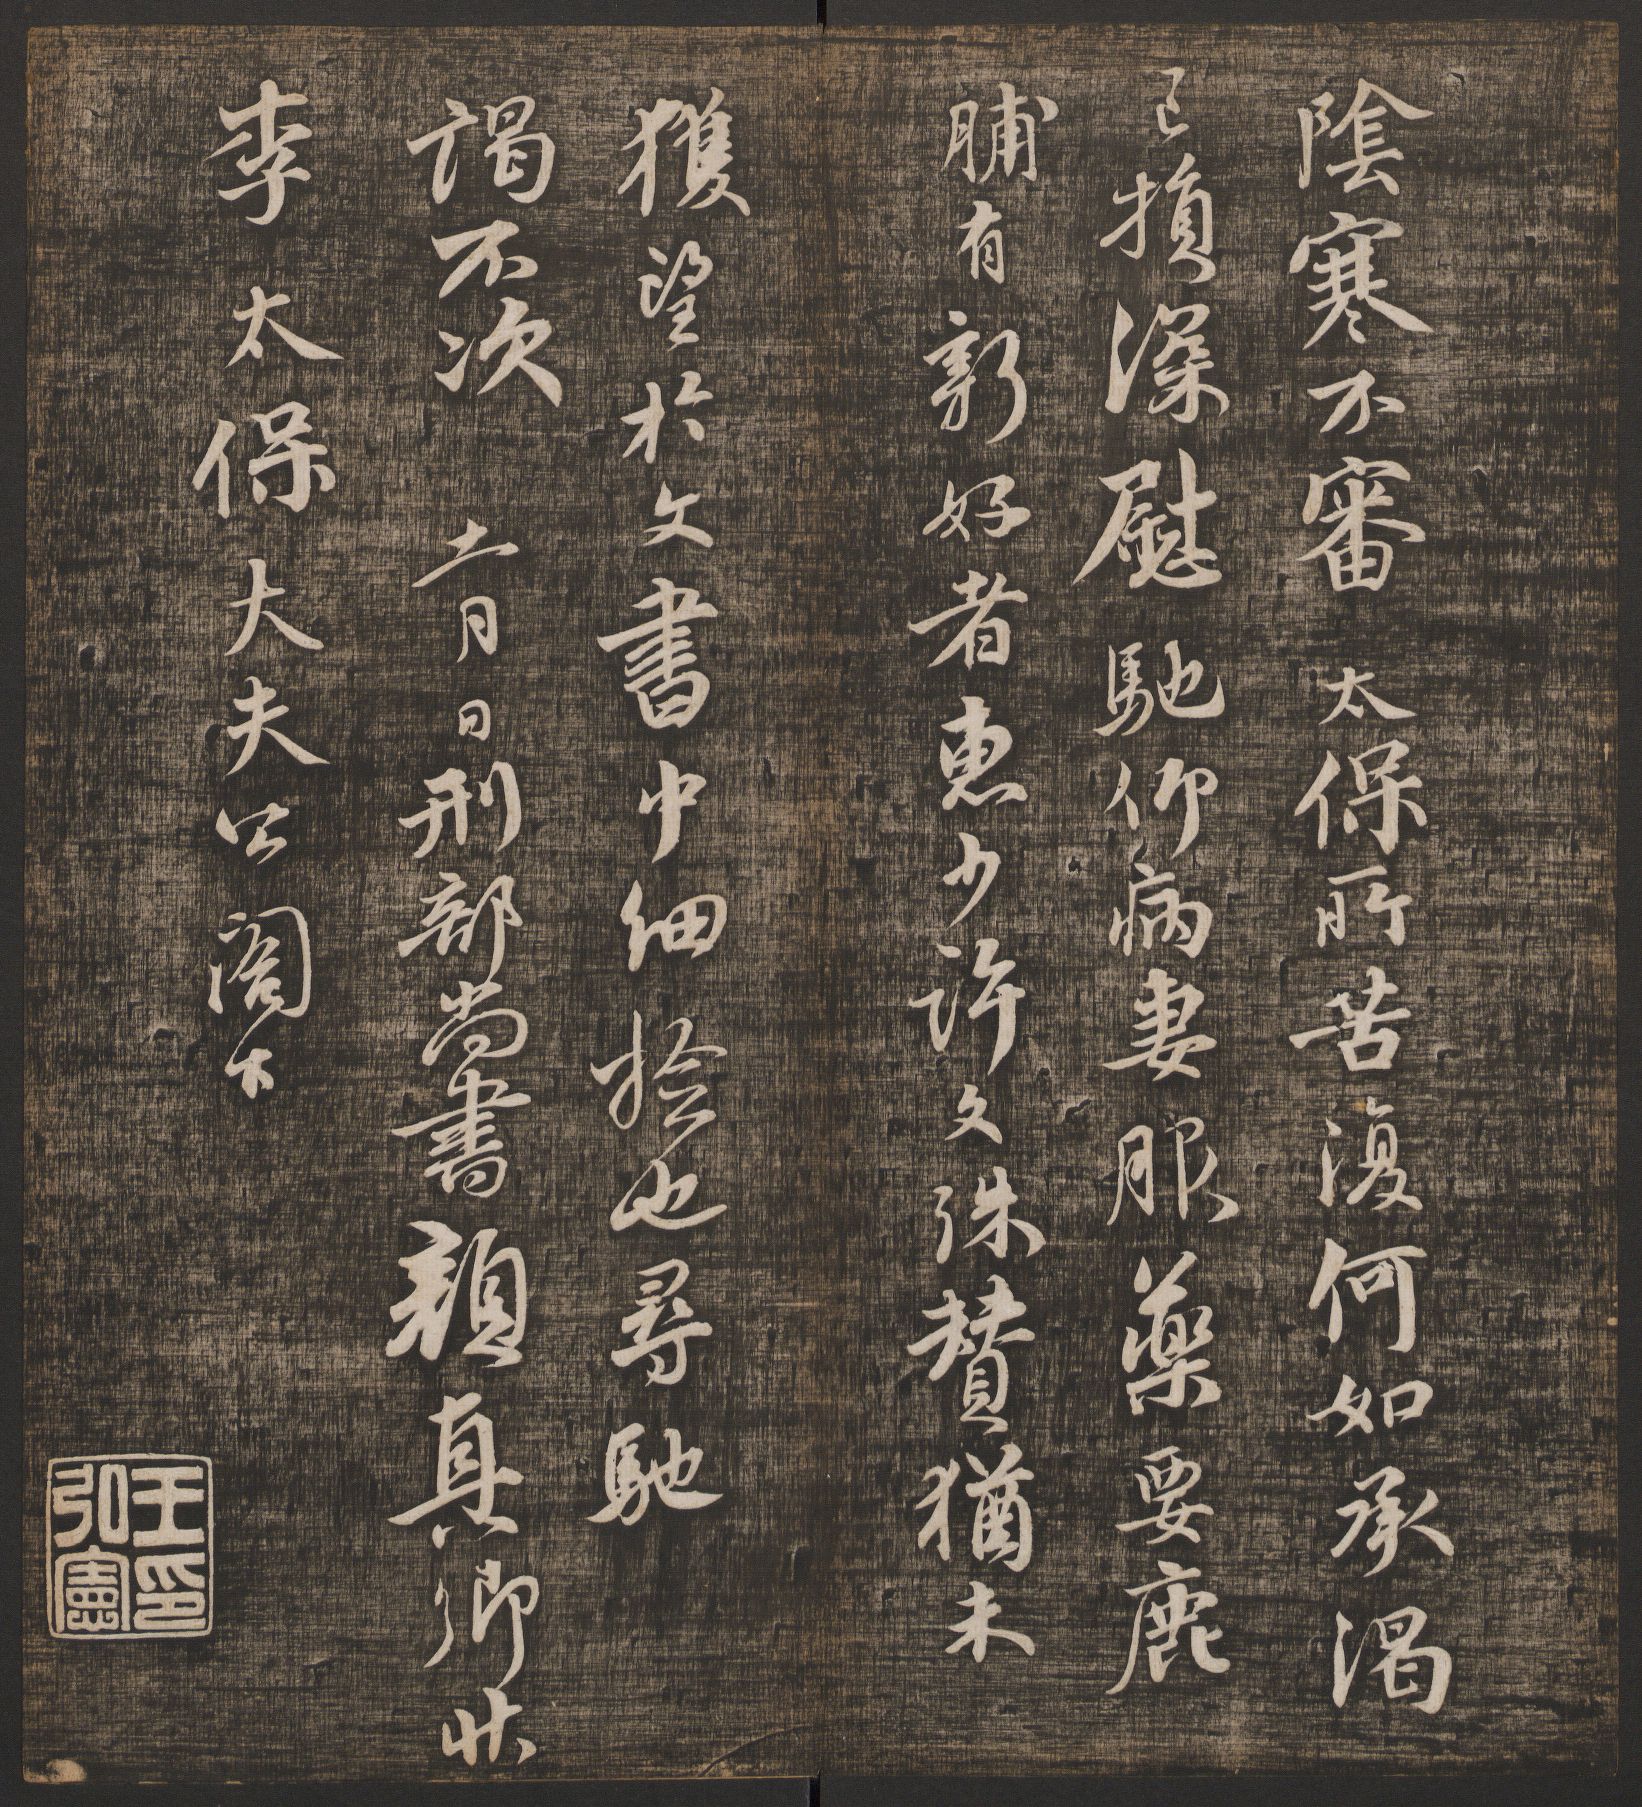 陰寒不審 太保所苦復何如承渴
已損深慰馳仰病妻服藥要鹿
脯有新好者惠少許文殊贊猶未
獲望於文書中細撿也尋馳
謁不次 十一月日刑部尚書顏真卿狀
李太保大夫公閤下
王弘憲印